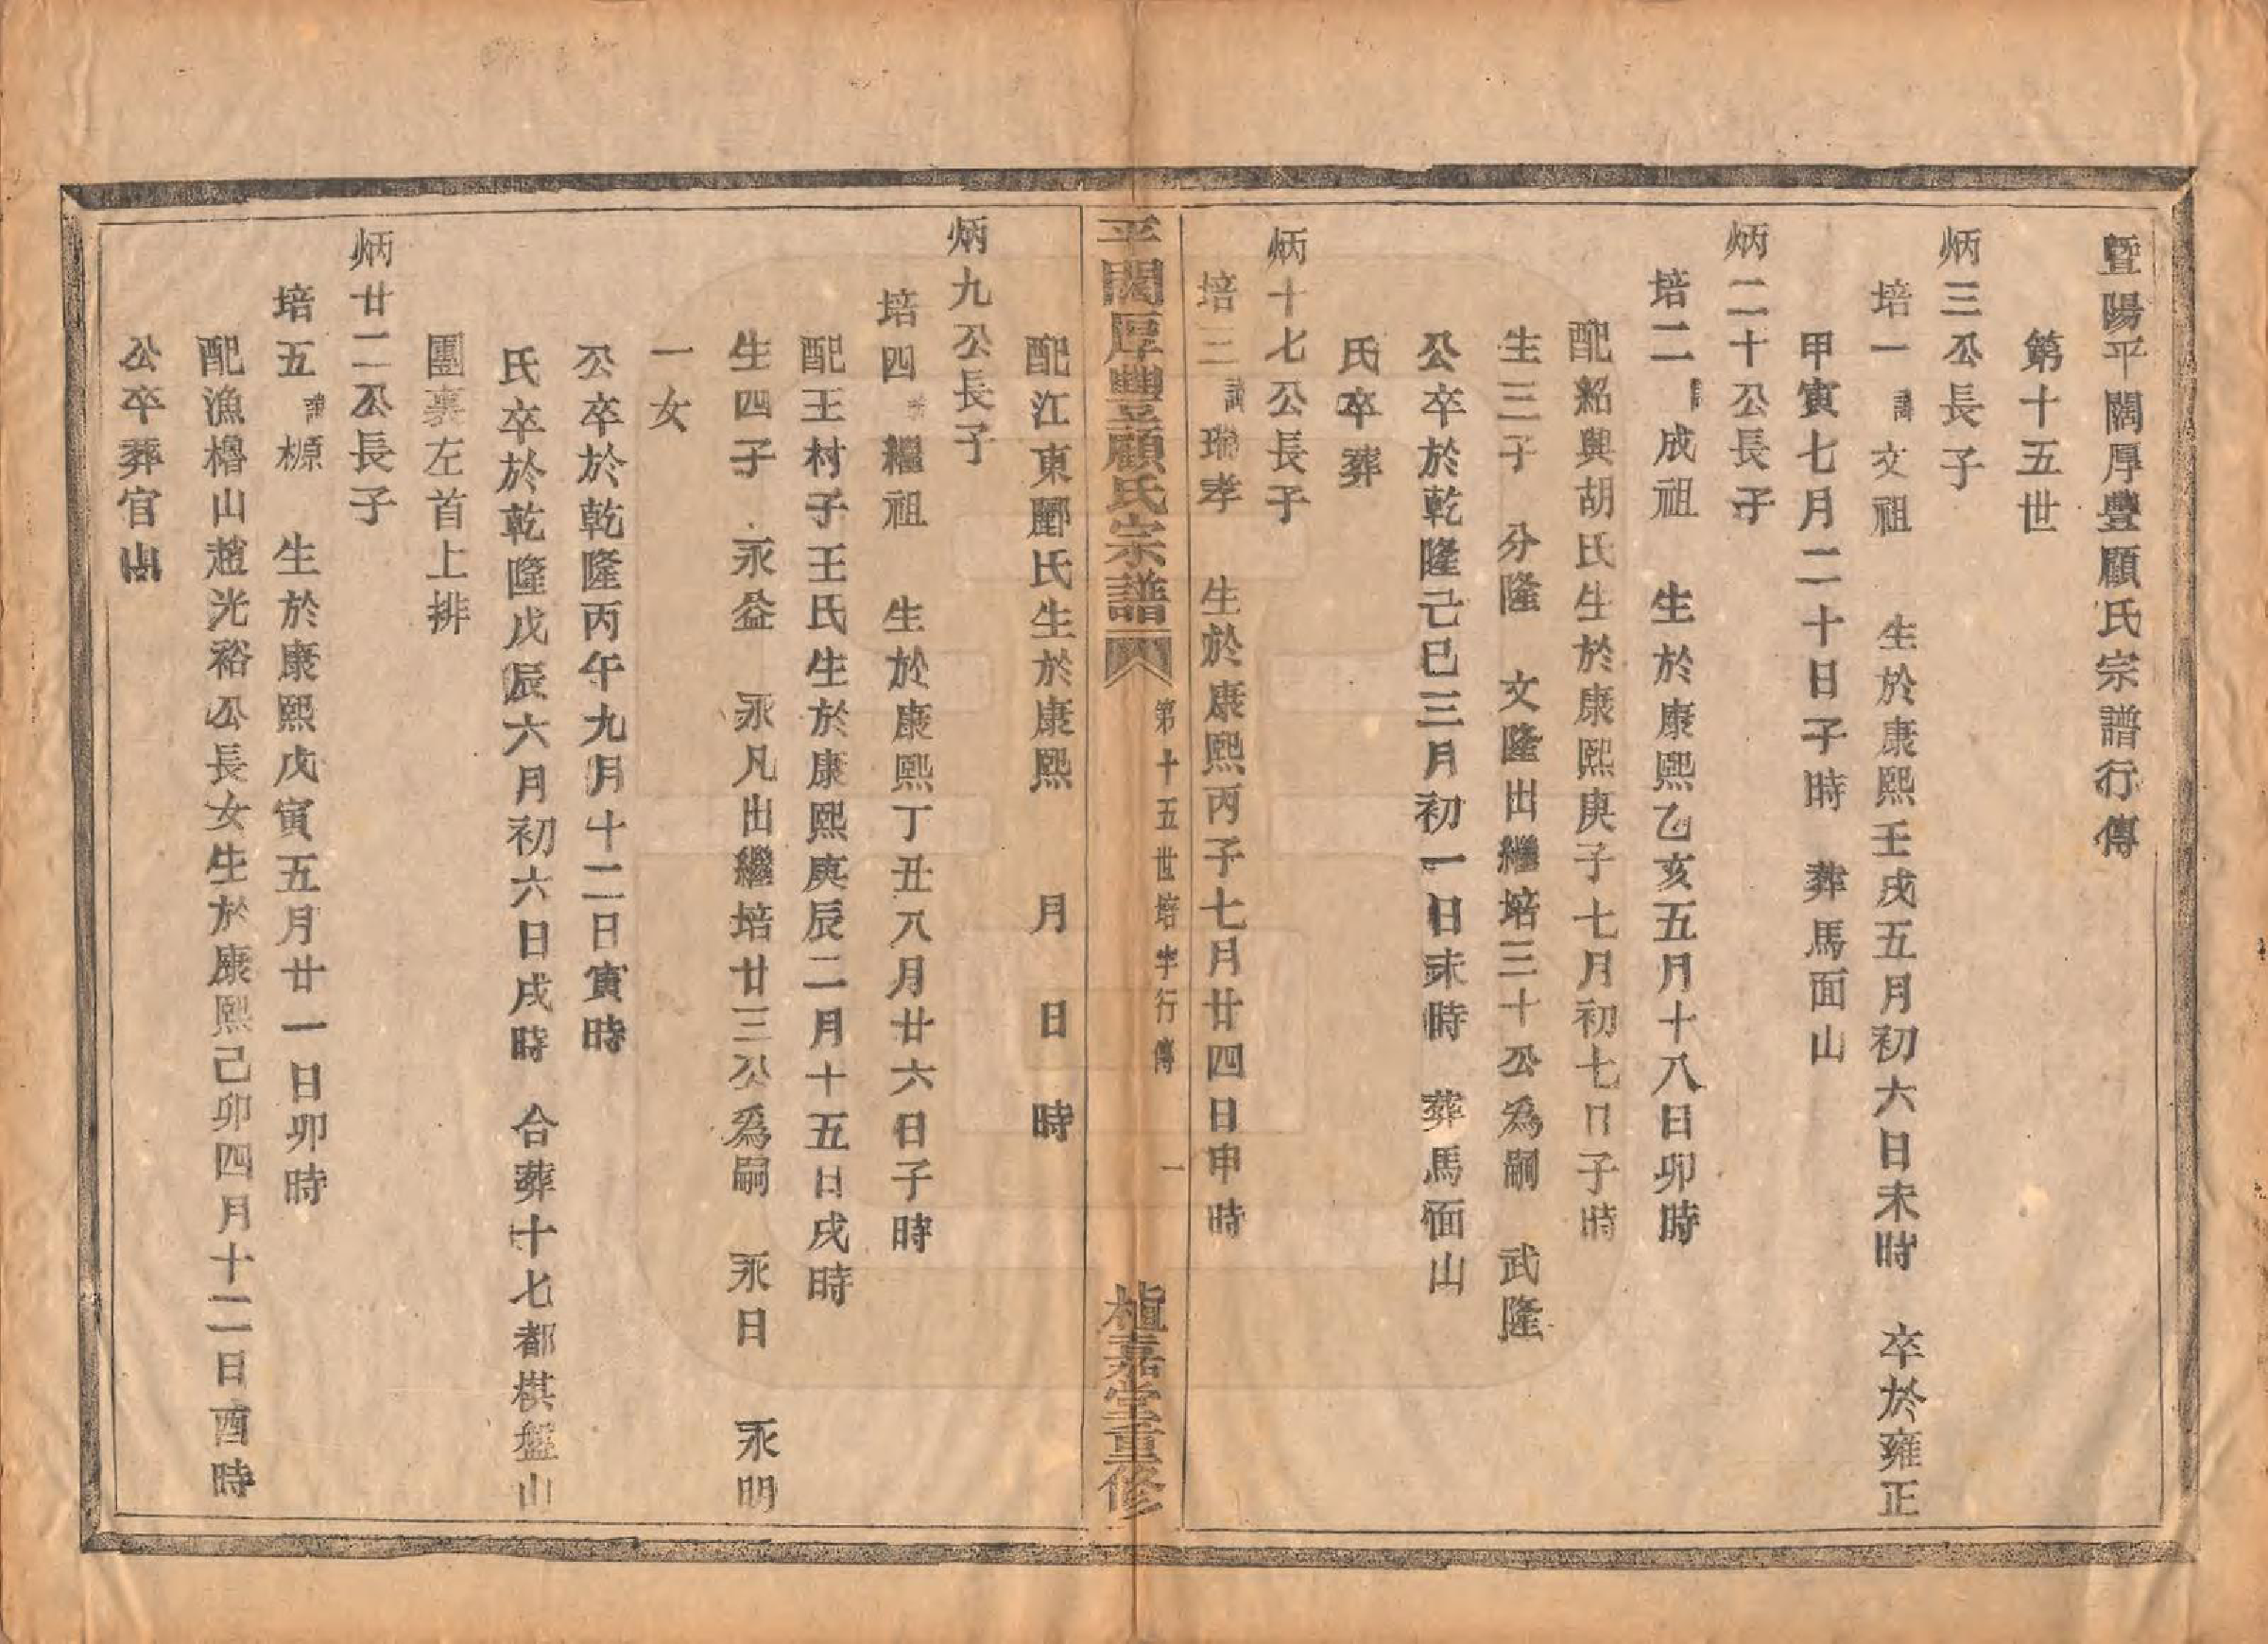 暨陽平闊厚豐顧氏宗譜行傳
第十五世
炳三公長子
培一 諱 文祖 生於康熙壬戌五月初六日未時 卒於雍正
甲寅七月二十日子時 葬馬面山
炳二十公長子
培二 諱 成祖 生於康熙乙亥五月十八日卯時
配紹興胡氏生於康熙庚子七月初七日子時
生三子 分隆 文隆出繼培三十公為嗣 武隆
公卒於乾隆己巳三月初一日未時 葬馬面山
氏卒葬
炳十七公長子
培三 諱 孝 生於康熙丙子七月廿四日申時
平闊厚豐顧氏宗譜 第十五世培字行傳 一 植嘉堂重修
配江東酈氏生於康熙 月 日 時
炳九公長子
培四 諱 繼祖 生於康熙丁丑八月廿六日子時
配王村子王氏生於康熙庚辰二月十五日戌時
生四子 永益 永凡出繼培廿三公為嗣 永日 永明
一女
公卒於乾隆丙午九月十二日寅時
氏卒於乾隆戊辰六月初六日戌時 合葬十七都棋盤山
團裏左首上排
炳廿二公長子
培五 諱 榞 生於康熙戊寅五月廿一日卯時
配漁櫓山趙光裕公長女生於康熙己卯四月十二日酉時
公卒葬官山